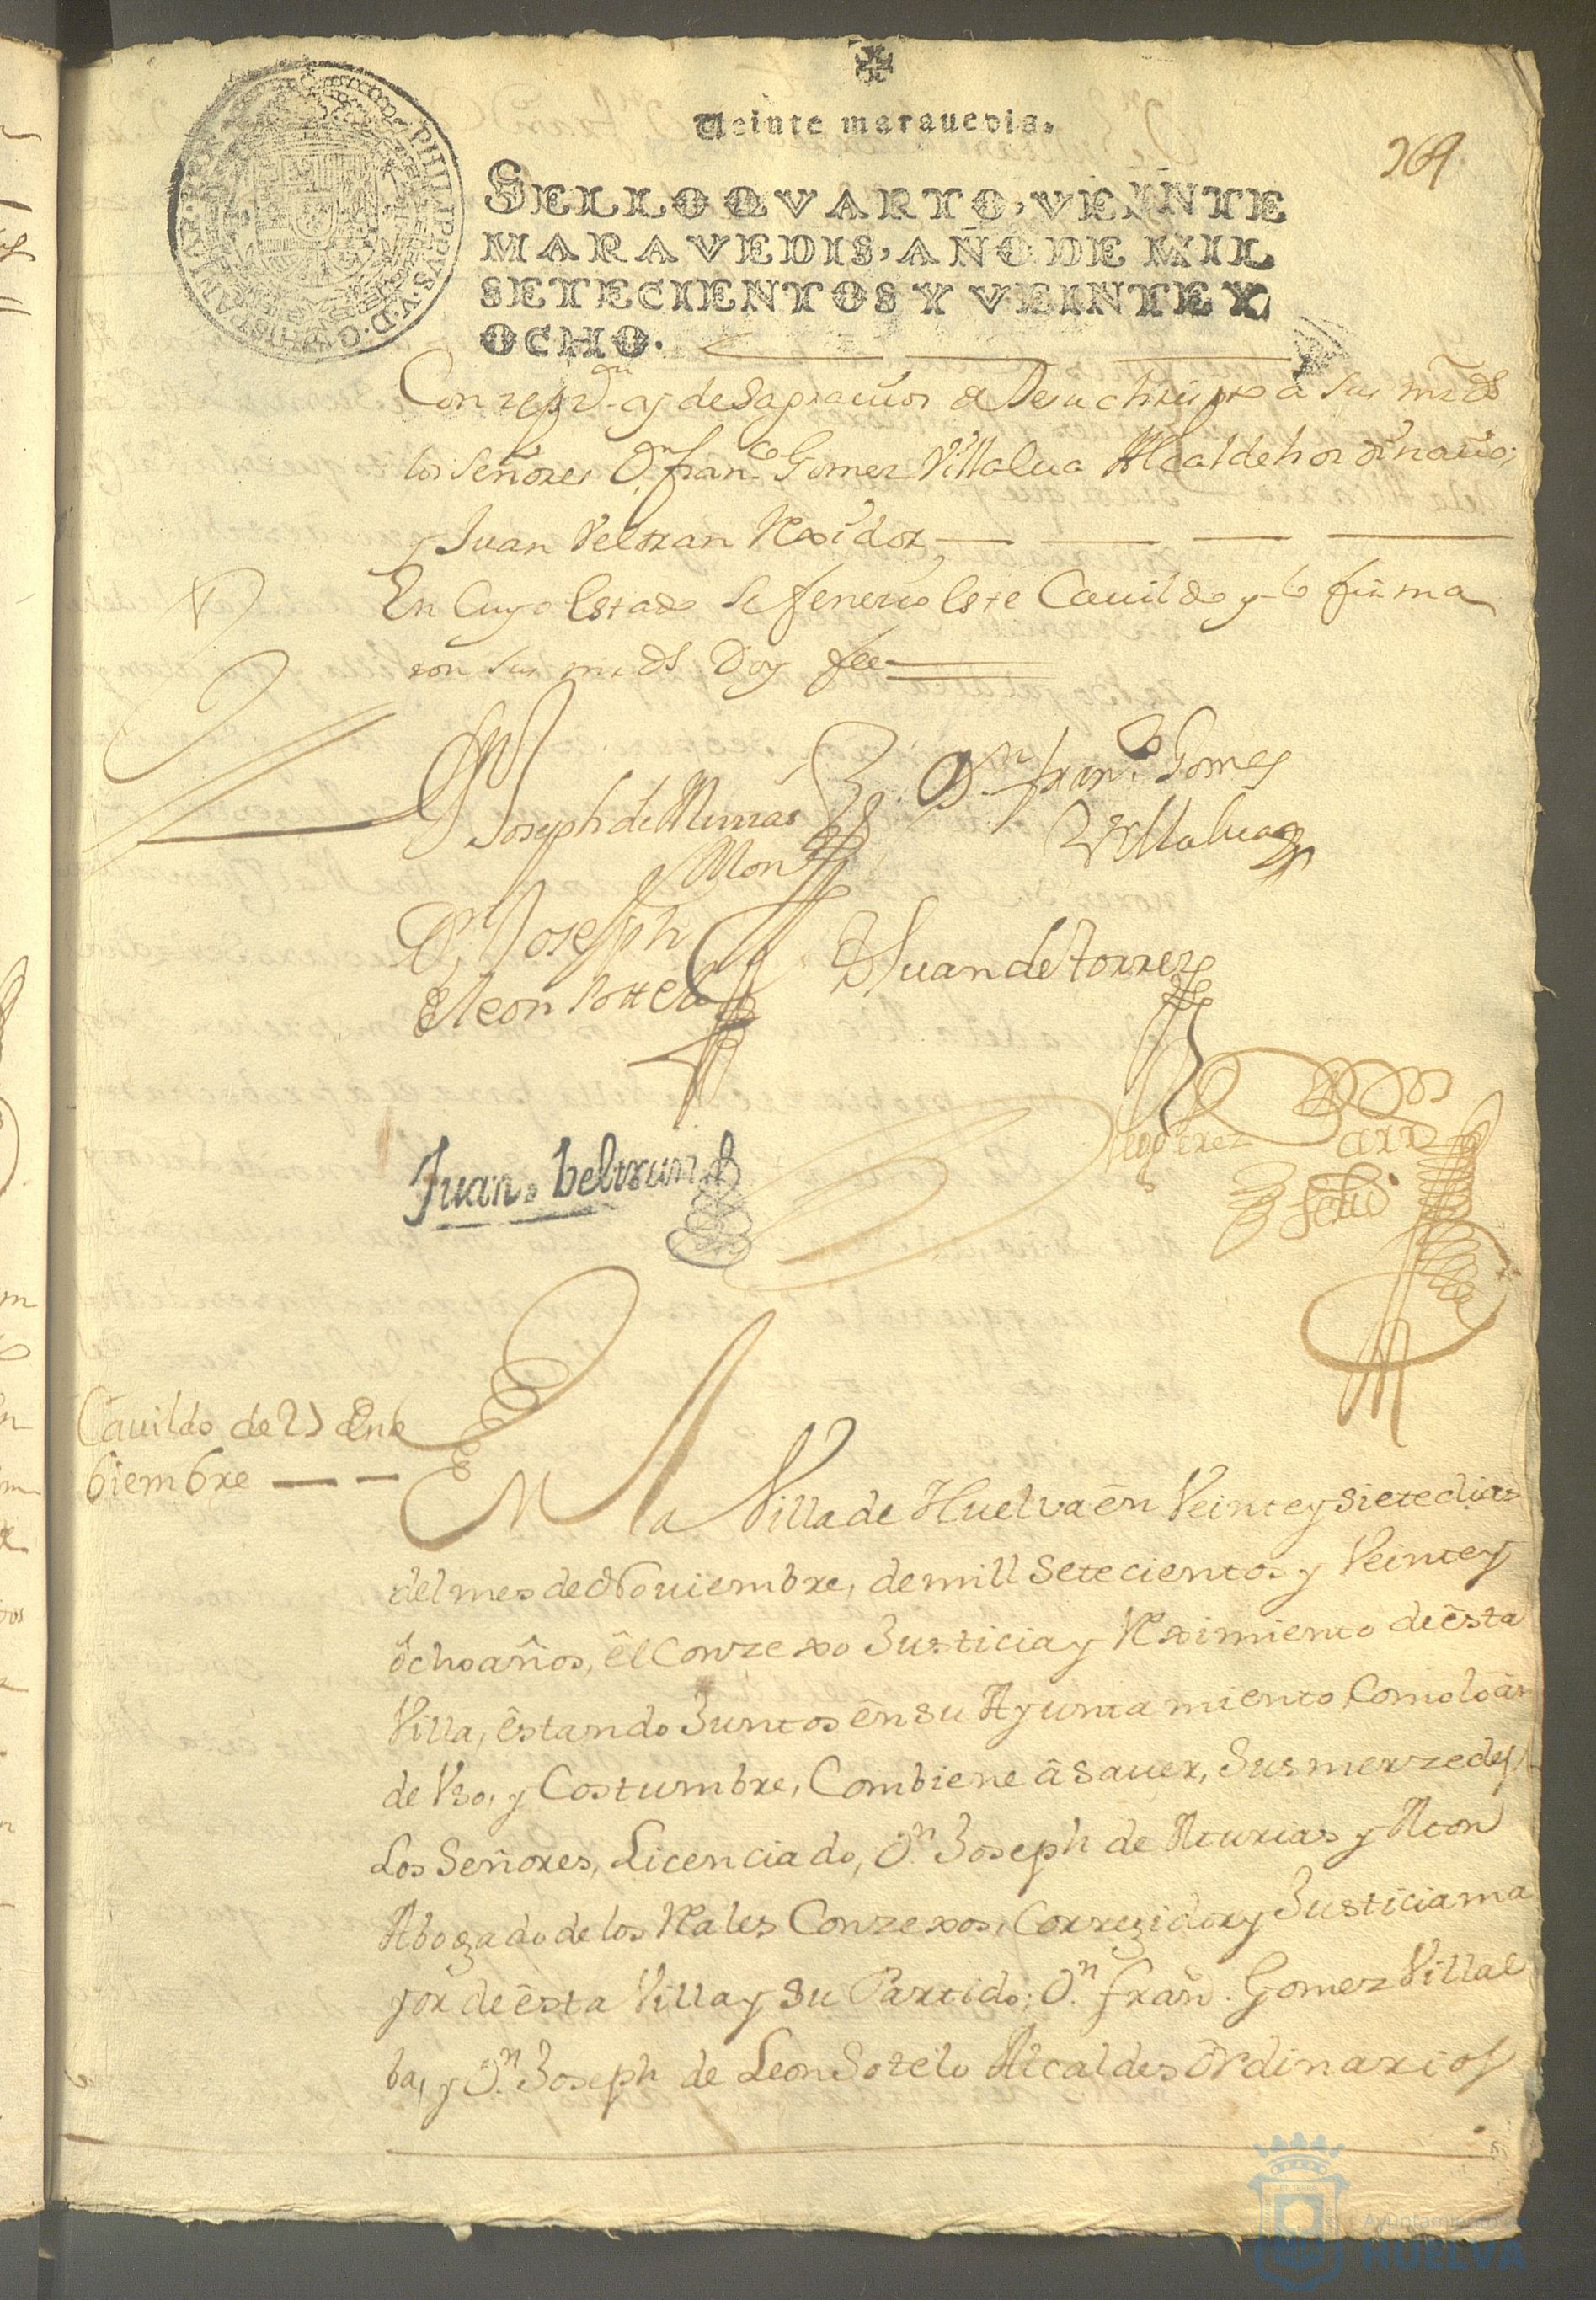 Veinte marauedis.
269
SELLO QVARTO, VEINTE
MARAVEDIS, AÑO DE MIL
SETECIENTOS Y VEINTE Y
OCHO.
PHILIPPVS.V.D.G. HISPANIAR
a sus mrds
los señores Dn. franco. Gomez Villalua Alcalde hordinario;
y Juan Veltran Rexidor,
En Cuyo Estado se fenecio Este Cauildo y lo firma
ron sus mrds Doy fee
Joseph de
Dn. franco. Gomes
Villalua
D. Joseph
de leon sotelo
Juan de torres
Juan. beltran
Cauildo de 27 de No
biembre
En la Villa de Huelva ên Veinte y siete dias
del mes de Nouiembre, de mill setecientos y Veinte y
ôcho años, êl Conzexo Justicia y Reximiento de êsta
Villa, êstando Juntos ên su Ayuntamiento Como lo an
de Vso, y Costumbre, Combiene â sauer, Sus merzedes
Los Señores, Licenciado, Dn. Joseph de Asturias y Mon
Abogado de los Reales Conzexos, Corregidor y Justicia ma
yor de êsta Villa y su Partido; Dn. fran. Gomez Villal
ba, y Dn. Joseph de Leon Sotelo Alcaldes ôrdinarios
Ayuntamiento de
HUELVA